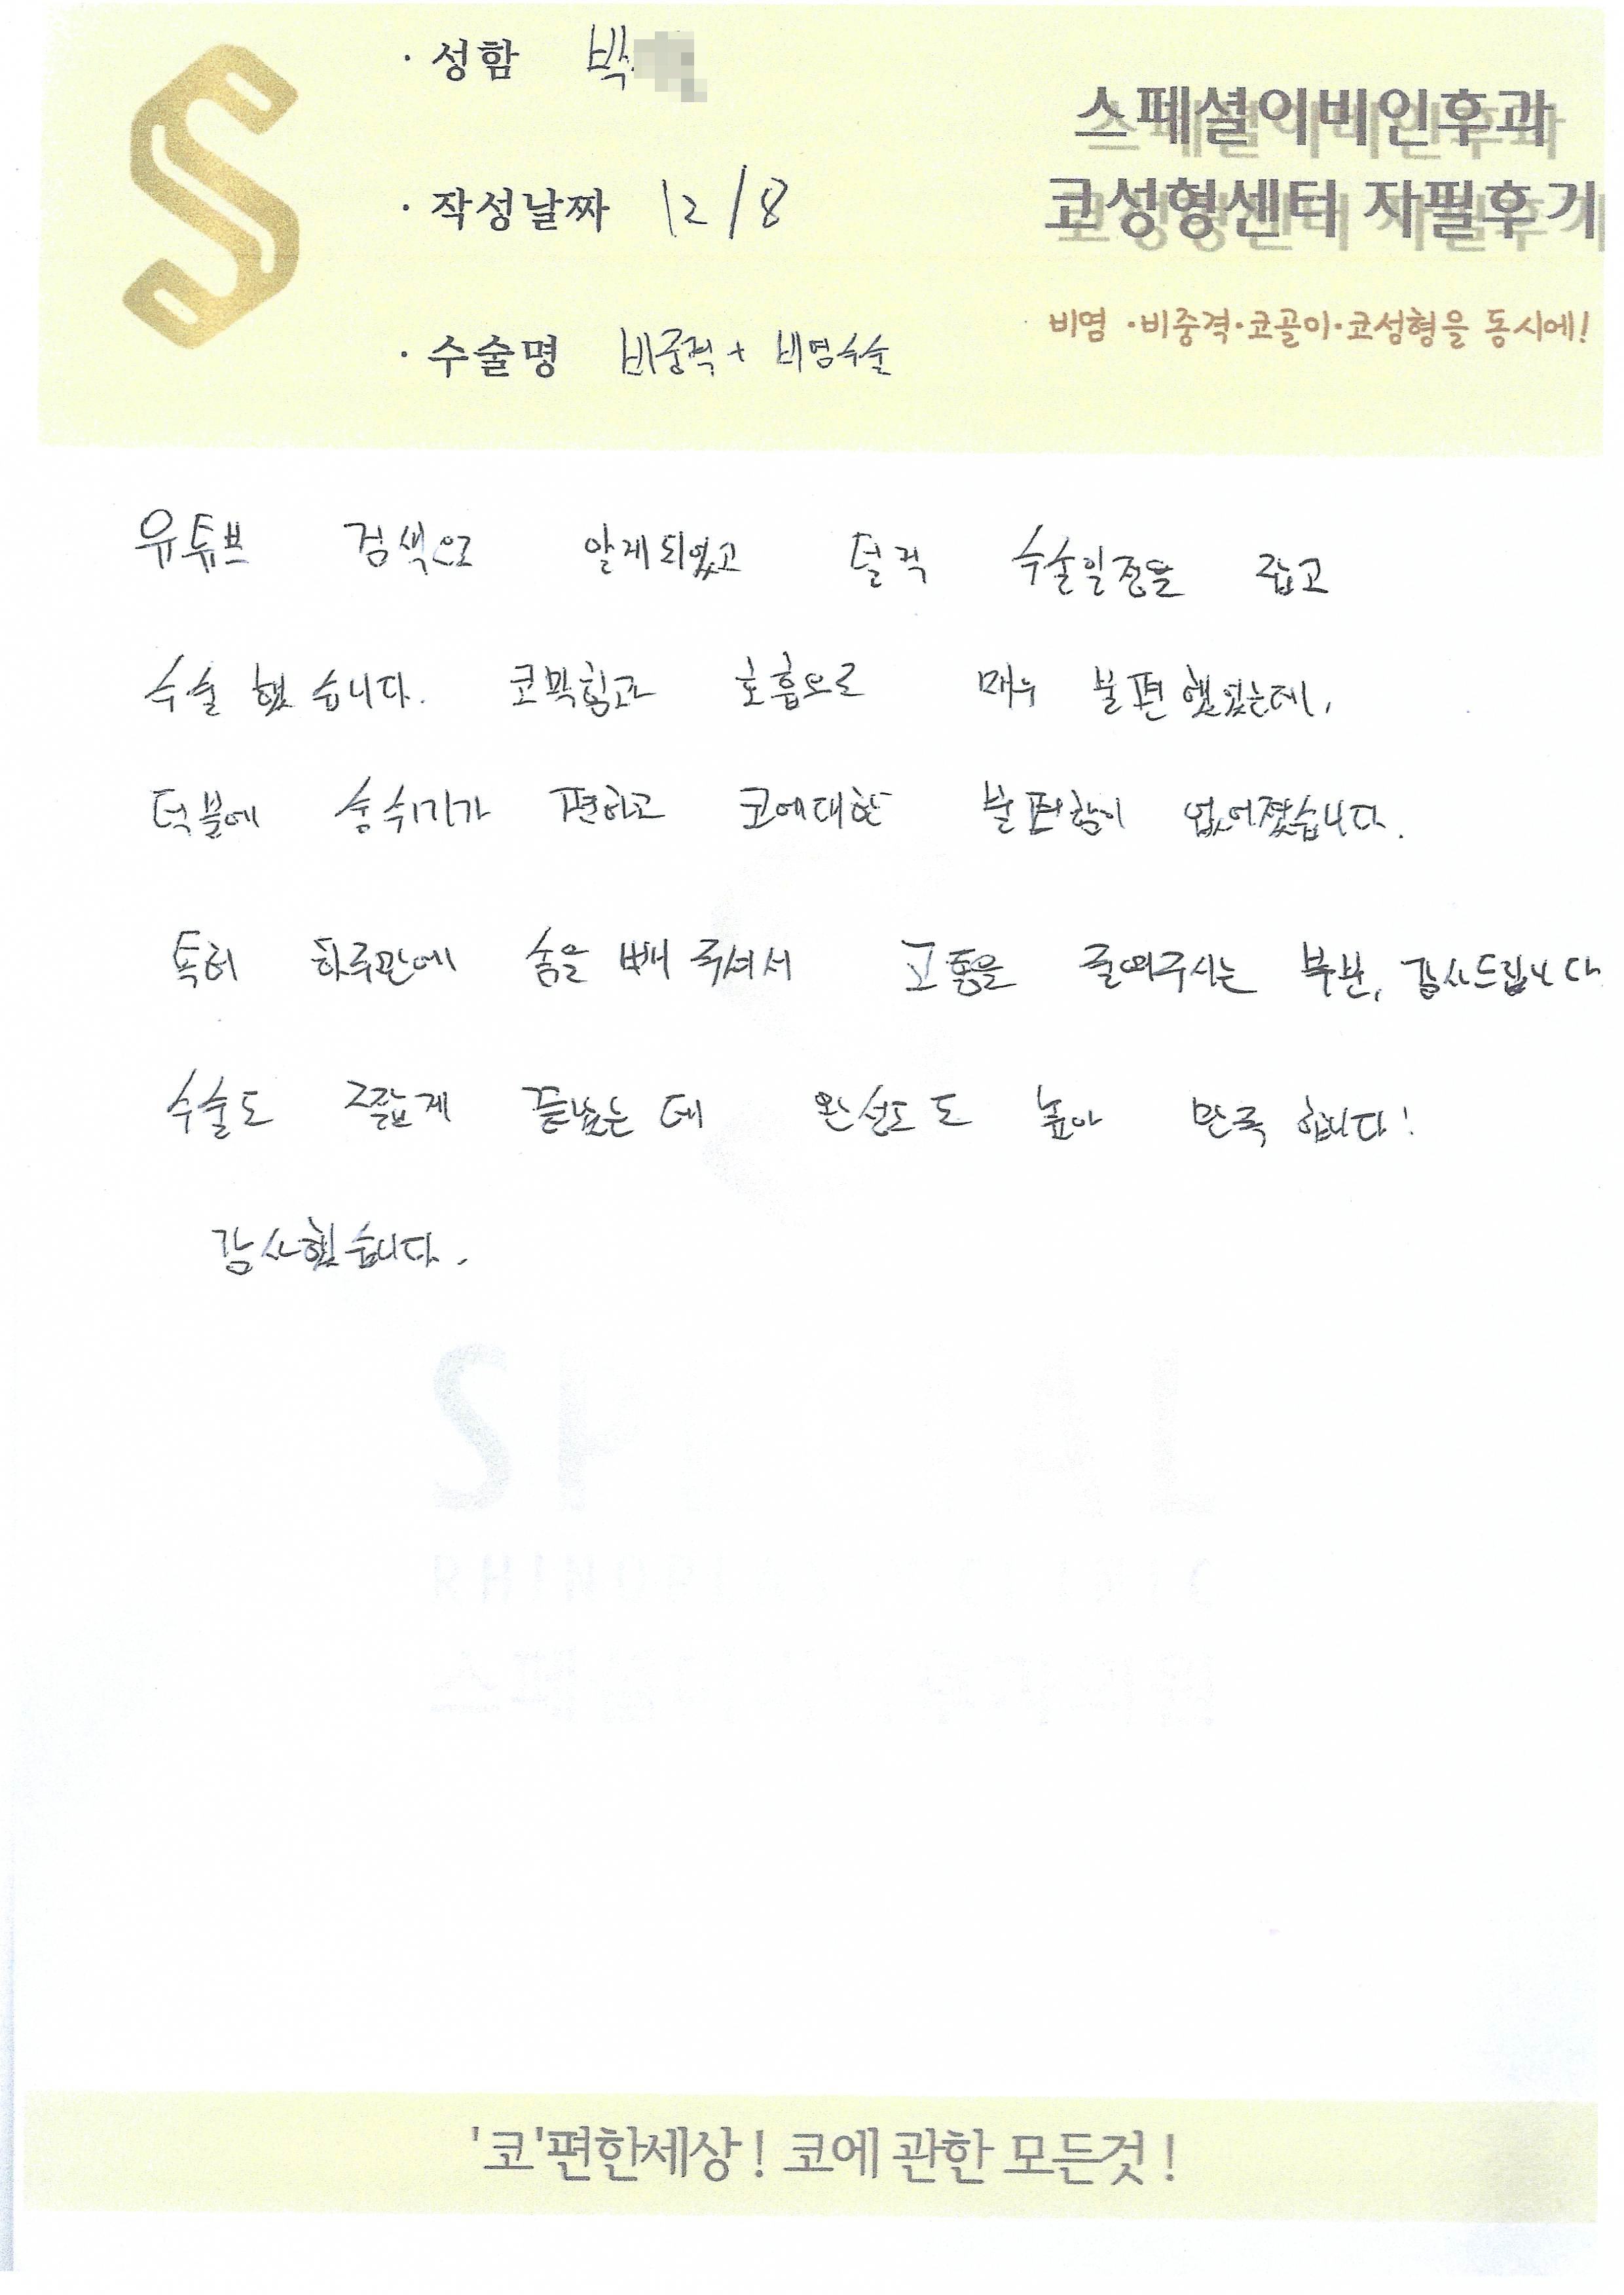 · 성함 박
· 작성날짜 12/8
· 수술명 비중격 + 비염수술
스페셜이비인후과
코성형센터 자필후기
비염·비중격·코골이·코성형을 동시에!
유튜브 검색으로 알게되었고 덜컥 수술일정을 잡고
수술 했습니다. 코막힘과 호흡으로 매우 불편했었는데,
덕분에 숨쉬기가 편하고 코에대한 불편함이 없어졌습니다.
특히 하루만에 솜을 빼 주셔서 고통을 줄여주시는 부분, 감사드립니다
수술도 짧게 끝났는데 완성도도 높아 만족합니다!
감사했습니다.
'코'편한세상! 코에 관한 모든것!